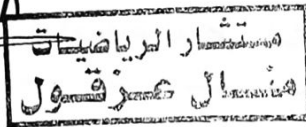 مستشار الرياضيات
منال عزقول